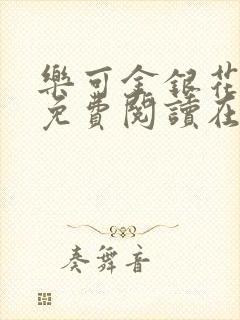 樂可金銀花
免費閱讀在
奏舞音